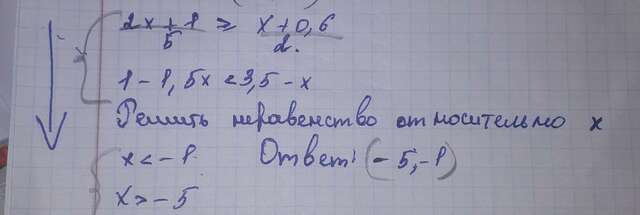 2x+1/5 ≥ x+0,6/2.
1-1,5x<3,5-x
Решить неравенство относительно x
x<-1 Ответ: (-5;-1)
x>-5